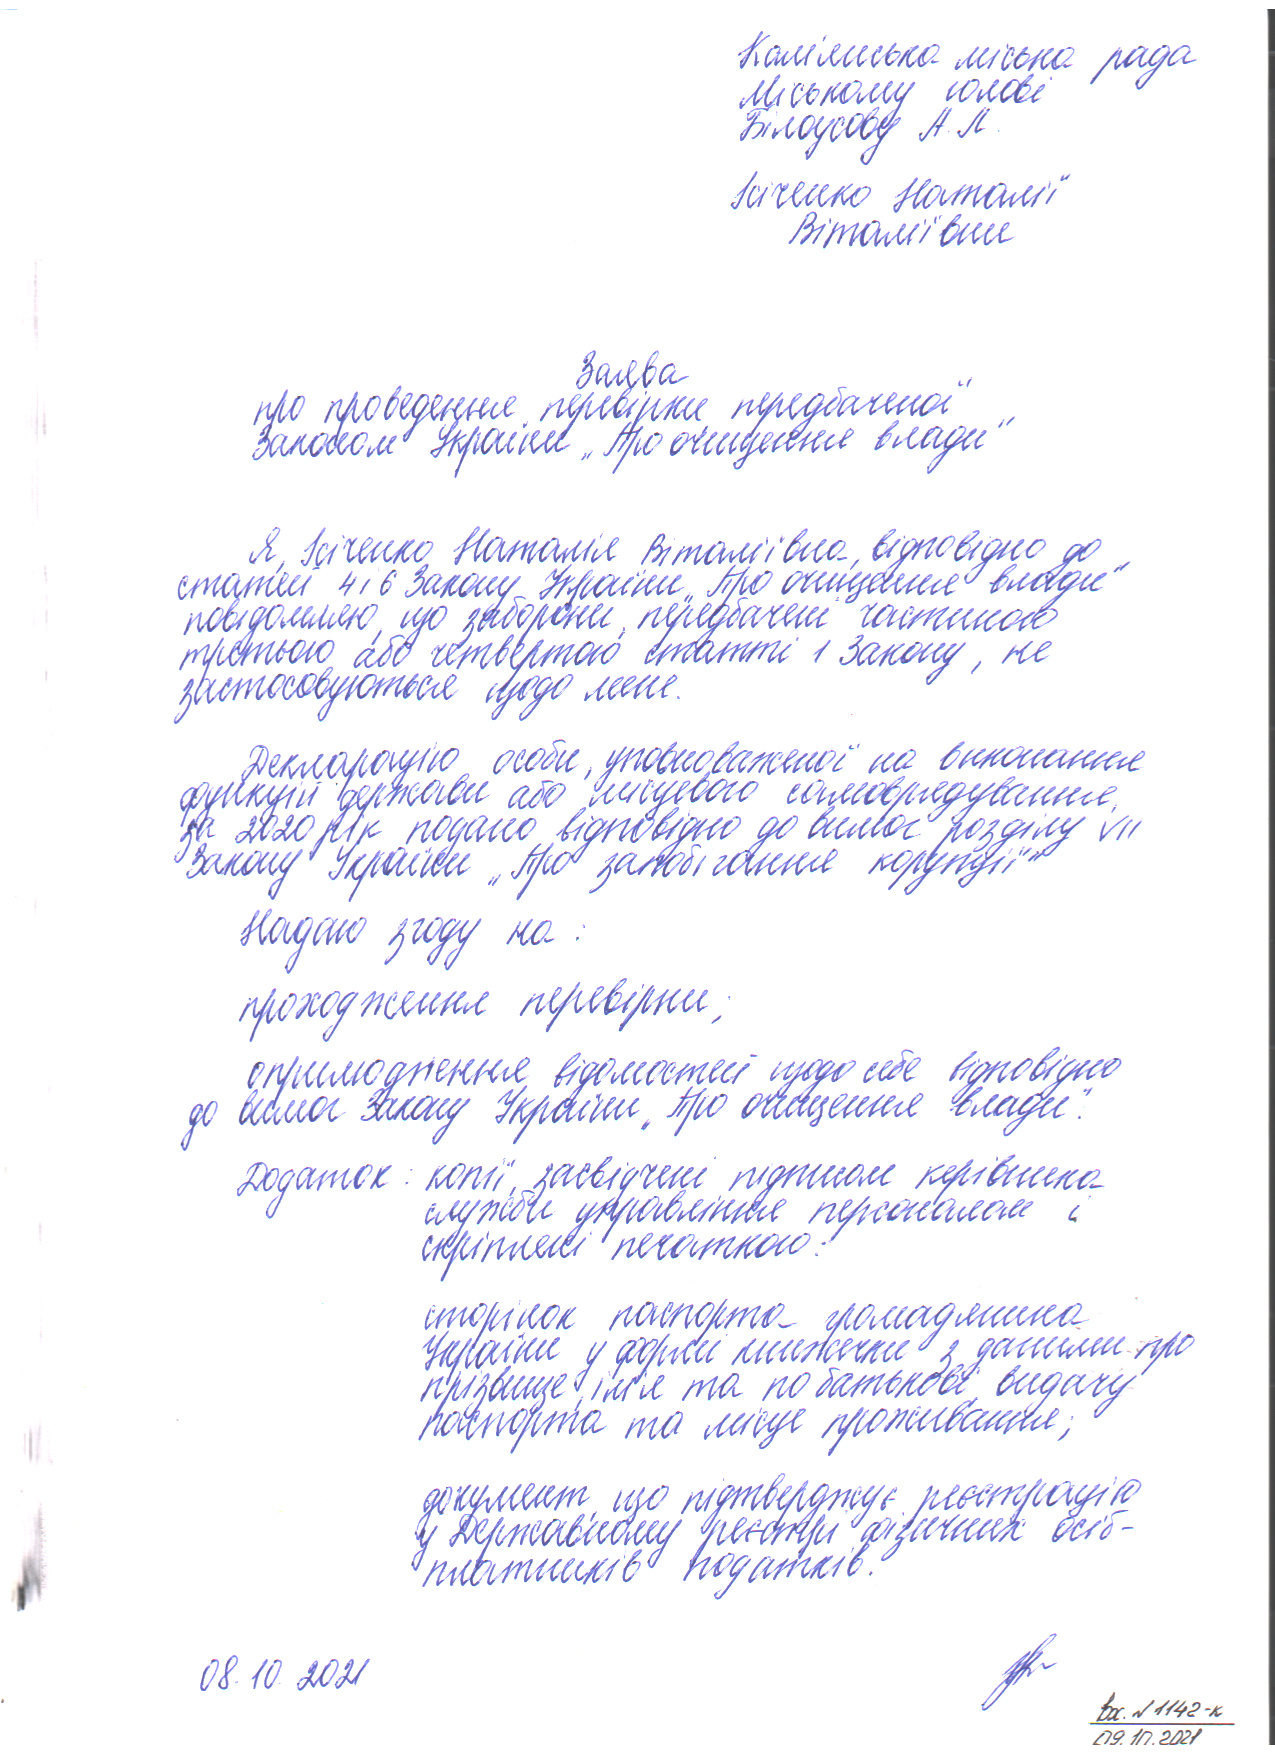 Кам'янська міська рада
Міському голові
Білоусову А.Л.
Ісіченко Наталії
Віталіївни
Заява
про проведення перевірки, передбаченої
Законом України „Про очищення влади"
Я, Ісіченко Наталія Віталіївна, відповідно до
статей 4 і 6 Закону України „Про очищення влади"
повідомляю, що заборони, передбачені частиною
третьою або четвертою статті 1 Закону, не
застосовуються щодо мене.
Декларацію особи, уповноваженої на виконання
функцій держави або місцевого самоврядування,
за 2020 рік подано відповідно до вимог розділу VII
Закону України „Про запобігання корупції"
Надаю згоду на:
проходження перевірки;
оприлюднення відомостей щодо себе відповідно
до вимог Закону України „Про очищення влади".
Додаток: копії, засвідчені підписом керівника
служби управління персоналом і
скріплені печаткою:
сторінок паспорта громадянина
України у формі книжечки з даними про
прізвище, ім'я та по батькові, видачу
паспорта та місце проживання;
документ, що підтверджує реєстрацію
у Державному реєстрі фізичних осіб-
платників податків.
08.10.2021
вх. № 1142-к
09.10.2021